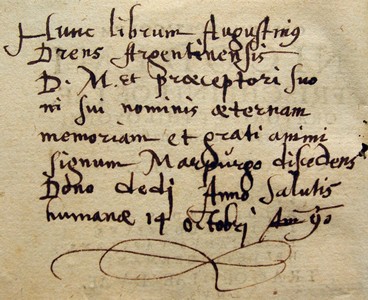 Hunc librum Augustinus
Drens Argentinensis
D. M. et præceptori suo
ni sui nominis æternam
memoriam et grati animi
signum Marpurgo discedens
Dono dedi Anno Salutis
humanæ 14 octobri